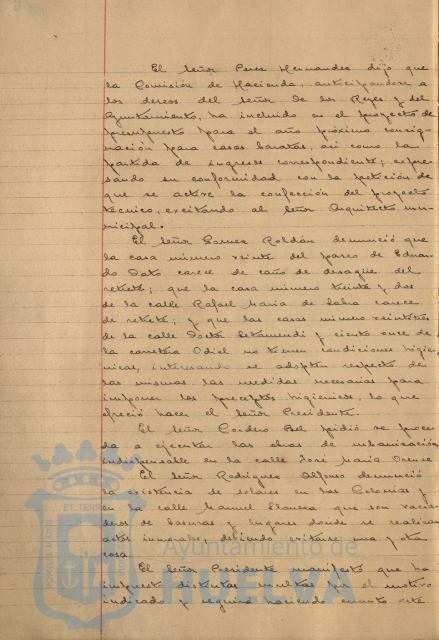 El Señor Perez Hernandez dijo que
la Comisión de Hacienda, anticipandose a
los deseos del Señor De los Reyes y del
Ayuntamiento, ha incluido en el proyecto de
presupuesto para el año próximo consig-
nación para casas baratas, asi como la
partida de ingresos correspondiente; expre-
sando su conformidad con la petición de
que se active la confección del proyecto
técnico, excitando al Señor Arquitecto mu-
nicipal.
El Señor Gomez Roldán denunció que
la casa número veinte del paseo de Eduar-
do Dato carece de caño de desagüe del
retrete; que la casa número treinta y dos
de la calle Rafael Maria de Labra carece
de retrete; y que las casas número veintitres
de la calle Jose Letamendi y ciento once de
la carretera Odiel no tienen condiciones higie-
nicas, interesando se adopten respecto de
las mismas las medidas necesarias para
imponer los preceptos higienicos, lo que
ofreció hacer el Señor Presidente.
El Señor Cordero Bel pidió se proce-
da a ejecutar las obras de urbanización
indispensable en la calle José Maria Orense
El Señor Rodriguez Alfonso denunció
la existencia de solares en las Colonias y
en la calle Manuel que son vacia-
deros de basuras y lugares donde se realizan
actos inmorales, debiendo evitarse una y otra
cosa.
El Señor Presidente manifestó que ha
impuesto distintas multas por el motivo
indicado y seguirá haciendo cuanto esté
Ayuntamiento de
HUELVA